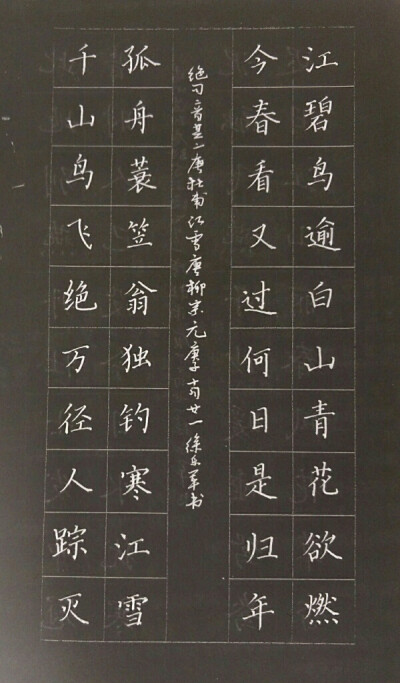 江碧鸟逾白山青花欲燃
今春看又过何日是归年
千山鸟飞绝万径人踪灭
孤舟蓑笠翁独钓寒江雪
绝句二首其二唐杜甫江雪唐柳宗元庚子十月廿一徐乐军书